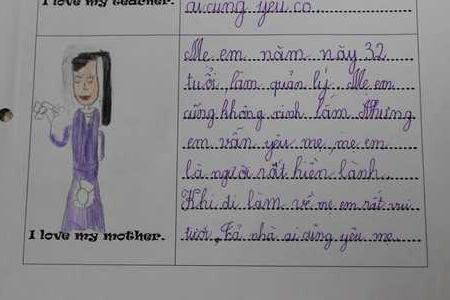 I love my teacher.
ai cũng yêu cô
Mẹ em năm nay 32
tuổi, làm quản lý. Mẹ em
cũng không xinh lắm Nhưng
em vẫn yêu mẹ, mẹ em
là người rất hiền lành.
Khi đi làm về mẹ em rất vui
tươi, Cả nhà ai cũng yêu mẹ.
I love my mother.